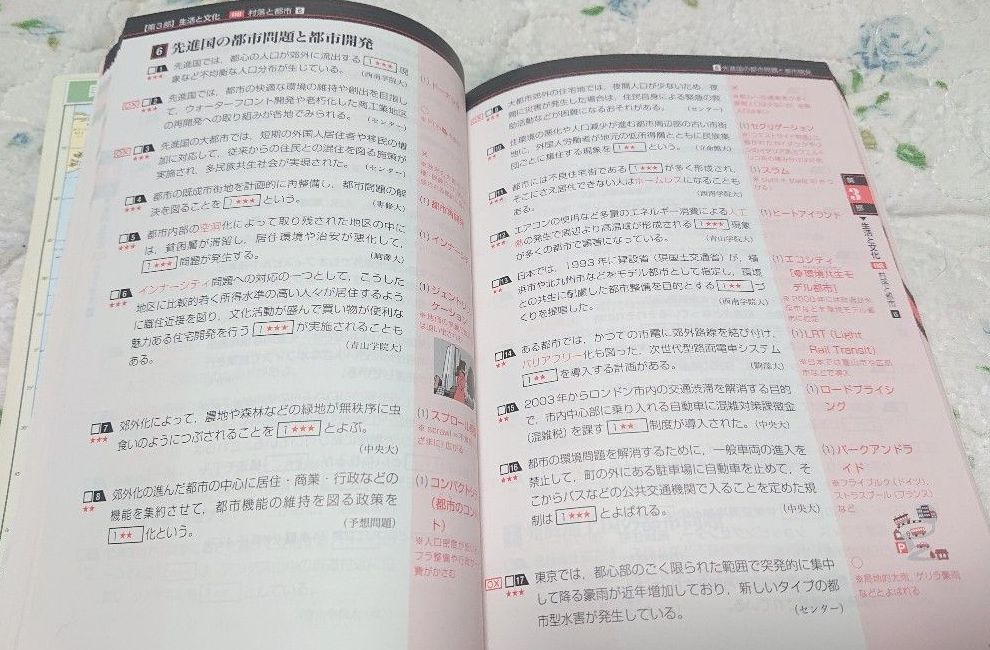 【第3部】生活と文化 村落と都市 6
6 先進国の都市問題と都市開発
1 先進国では、都心の人口が郊外に流出する 1★★★ 現
★★★ 象など不均衡な人口分布が生じている。(西南学院大)
(1)ドーナツ
OX 2 先進国では、都市の快適な環境の維持や創出を目指し
★★ て、ウォーターフロント開発や老朽化した商工業地区
の再開発への取り組みが各地でみられる。(センター)
OX 3 先進国の大都市では、短期の外国人居住者や移民の増
★★★ 加に対応して、従来からの住民との混住を図る施策が
実施され、多民族共生社会が実現された。(センター)
4 都市の既成市街地を計画的に再整備し、都市問題の解
★★★ 決を図ることを 1★★★ という。(専修大)
(1)都市再開発
5 都市内部の空洞化によって取り残された地区の中に
★★★ は、貧困層が滞留し、居住環境や治安が悪化して、
1★★★ 問題が発生する。(駒澤大)
(1)インナーシ
6 インナーシティ問題への対応の一つとして、こうした
★★★ 地区に比較的若く所得水準の高い人々が居住するよう
に職住近接を図り、文化活動が盛んで買い物が便利な
魅力ある住宅開発を行う 1★★★ が実施されることも
ある。(青山学院大)
(1)ジェントリ
ケーション
7 郊外化によって、農地や森林などの緑地が無秩序に虫
★★★ 食いのようにつぶされることを 1★★★ とよぶ。
(中央大)
(1)スプロール
8 郊外化の進んだ都市の中心に居住・商業・行政などの
★★ 機能を集約させて、都市機能の維持を図る政策を
1★★ 化という。(予想問題)
(1)コンパクト
(都市のコン
ト)
※人口密度が
フラ整備や行政
費がかさむ
6 先進国の都市問題と都市開発
大都市郊外の住宅地では、夜間人口が少ないため、夜
間に災害が発生した場合は、住民自身による緊急の救
助活動などが困難になるおそれがある。(センター)
住環境の悪化や人口減少が進む都市周辺部の古い市街
地に、外国人労働者が地元の低所得層とともに民族集
団ごとに集住する現象を 1★★ という。(立命館大)
(1)セグリゲーション
11 都市には不良住宅街である 1★★★ が多く形成され、
★★★ そこにさえ居住できない人はホームレスになることも
ある。(西南学院大)
(1)スラム
12 エアコンの使用など多量のエネルギー消費による人工
★★★ 熱の発生で周辺より高温域が形成される 1★★★ 現象
が多くの都市で顕著になっている。(青山学院大)
(1)ヒートアイランド
13 日本では、1993年に建設省(現国土交通省)が、横
★★ 浜市や北九州市などをモデル都市として指定し、環境
との共生に配慮した都市整備を目的とする 1★★ づ
くりを推進した。(西南学院大)
(1)エコシティ
[環境共生モ
デル都市]
14 ある都市では、かつての市電に郊外路線を結び付け、
★★ バリアフリー化も図った、次世代型路面電車システム
1★★ を導入する計画がある。(駒澤大)
(1)LRT (Light
Rail Transit)
15 2003年からロンドン市内の交通渋滞を解消する目的
★★ で、市内中心部に乗り入れる自動車に混雑対策課徴金
(混雑税)を課す 1★★ 制度が導入された。(中央大)
(1)ロードプライシ
ング
16 都市の環境問題を解消するために、一般車両の進入を
★★★ 禁止して、町の外にある駐車場に自動車を止めて、そ
こからバスなどの公共交通機関で入ることを定めた規
制は 1★★★ とよばれる。(中央大)
(1)パークアンドラ
イド
※フライブルク(ドイツ)、
ストラスブール(フランス)
など
P
OX 17 東京では、都心部のごく限られた範囲で突発的に集中
★★★ して降る豪雨が近年増加しており、新しいタイプの都
市型水害が発生している。(センター)
○
※局地的大雨、ゲリラ豪雨
などとよばれる
第
3
部
▼生活と文化
村落と都市
6